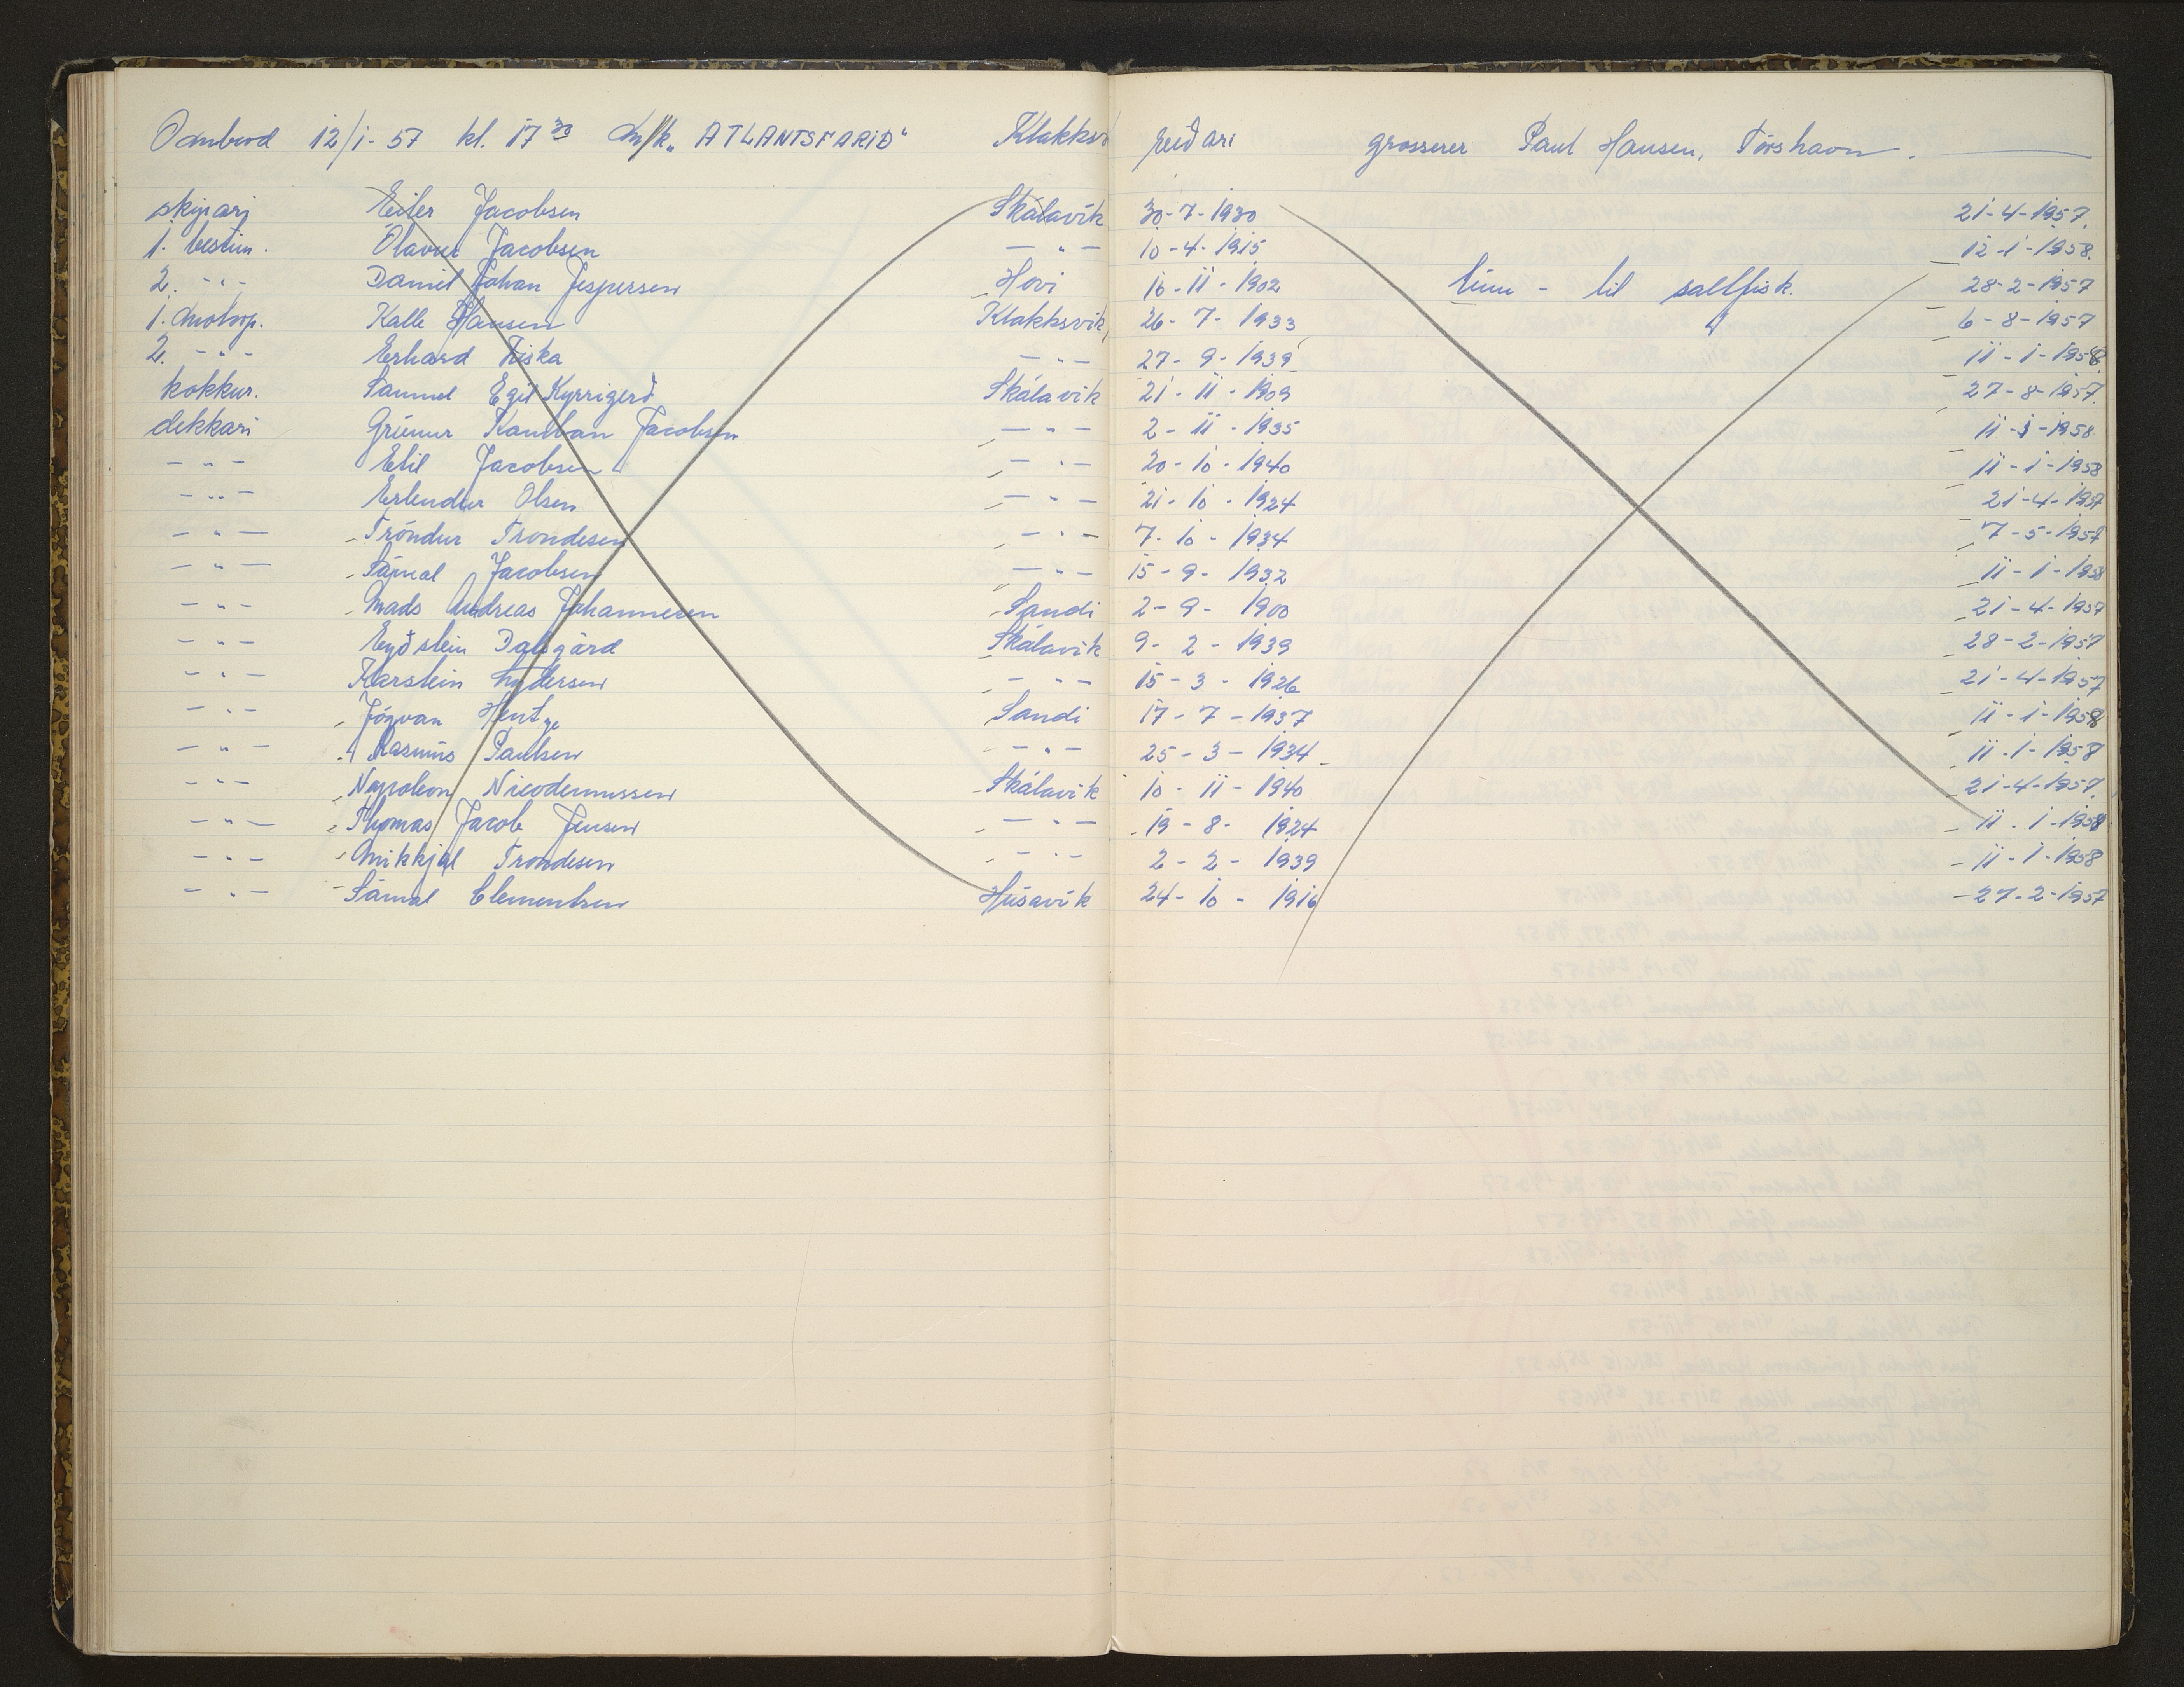 Oambod 12/1-57 kl. 17 30 M/k „ATLANTSFARIÐ“ Klakksv reiðari grosserer Paul Hansen, Tórshavn.
skipari Eiler Jacobsen Skálavík 30-7-1930 21-4-1957.
1. bestm. Ólavur Jacobsen — " — 10-4-1915 12-1-1958.
2. - " - Daniel Johan Jespersen Hovi 16-11-1902 línu - til saltfisk. 28-2-1957
1. motorp. Kalle Hansen Klakksvík 26-7-1933 6-8-1957
2. - " - Erhard Fiska — " — 27-9-1939 11-1-1958
kokkur. Samuel Egil Kyrrigerð Skálavík 21-11-1909 27-8-1957.
dekkari Grímur Kamban Jacobsen — " — 2-11-1935 11-1-1958
- " - Etil Jacobsen — " — 20-10-1940 11-1-1958
- " - Erlendur Olsen — " — 21-10-1924 21-4-1957
- " - Tróndur Trondesen — " — 7-10-1934 7-5-1957
- " - Sámal Jacobsen — " — 15-9-1932 11-1-1958
- " - Mads Andreas Johannesen Sandi 2-9-1900 21-4-1957
- " - Eyðstein Dalsgárd Skálavík 9-2-1939 28-2-1957
- " - Karstein Lydersen — " — 15-3-1926 21-4-1957
- " - Jógvan Hentze Sandi 17-7-1937 11-1-1958
- " - Rasmus Paulsen — " — 25-3-1934 11-1-1958
- " - Napoleon Nicodemussen Skálavík 10-11-1940 21-4-1957.
- " - Thomas Jacob Jensen — " — 19-8-1924 11-1-1958
- " - Mikkjal Trondesen — " — 2-2-1939 11-1-1958
- " - Sámal Clementsen Húsavík 24-10-1916 27-2-1957